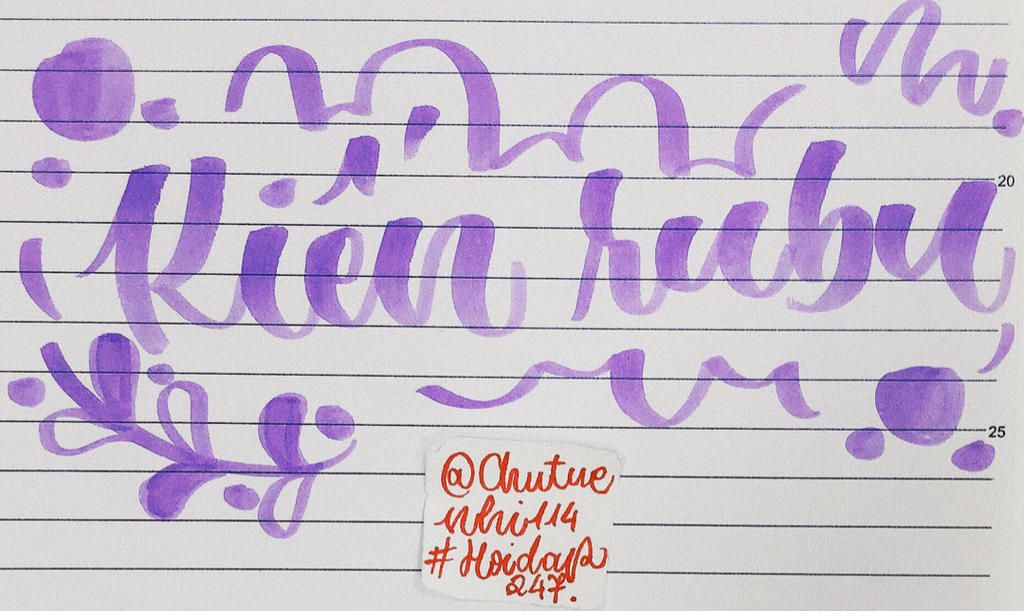 Kiến rubu
20
25
@Chutue
nhi1114
#Hoidap
247.